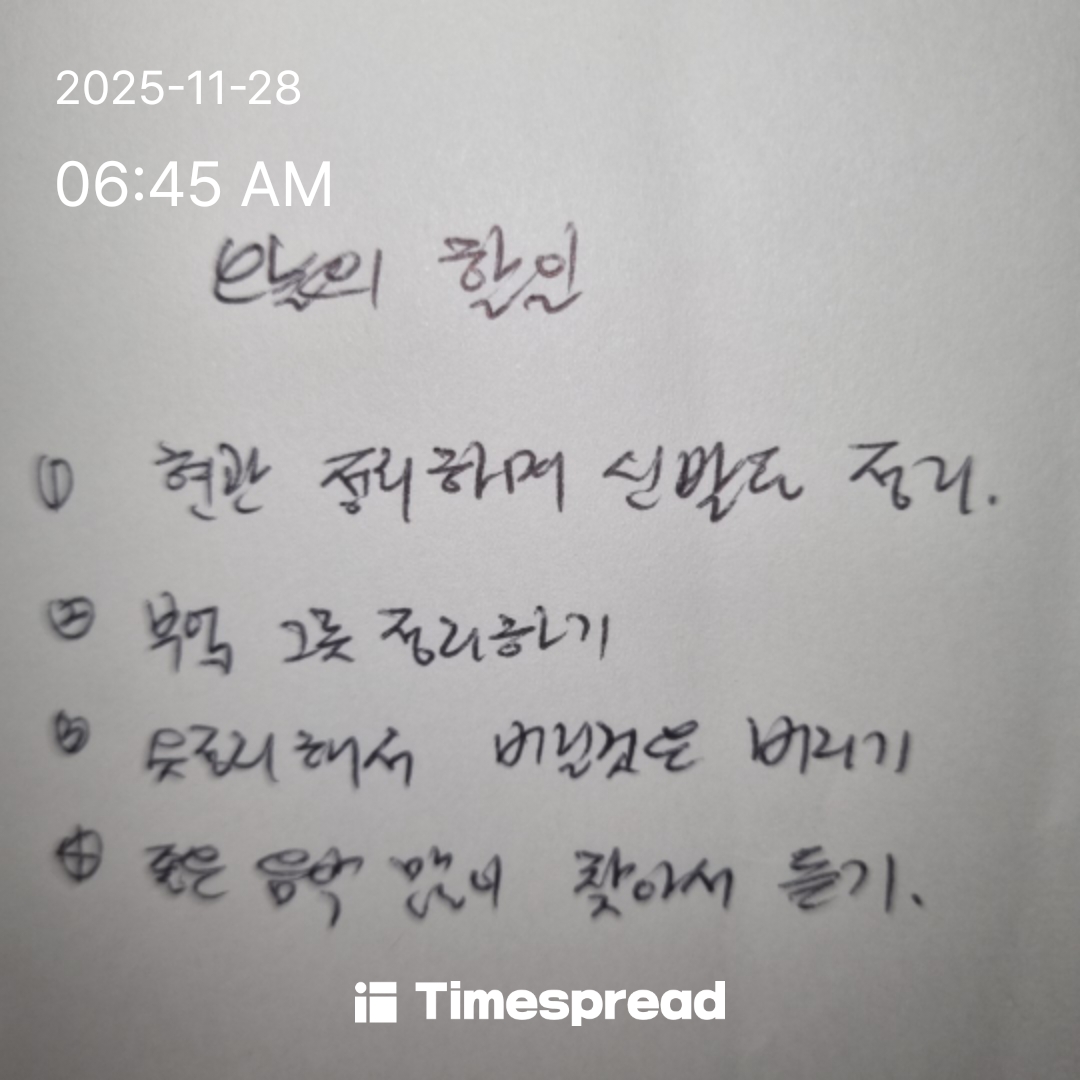 2025-11-28
06:45 AM
오늘의 할일
① 현관 정리하며 신발도 정리.
② 부엌 그릇 정리하기
③ 옷정리해서 버릴것은 버리기
④ 좋은 음악 많이 찾아서 듣기.
Timespread